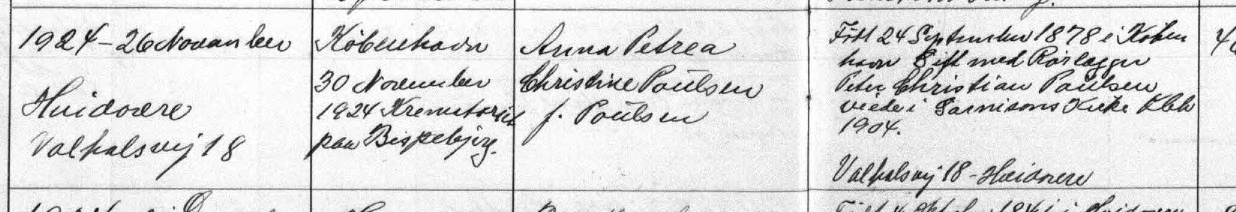 1924-26 November
Hvidovre
Valhalsvej 18
København
30 November
1924 Krematoriet
paa Bispebjerg.
Anna Petrea
Christine Poulsen
f. Poulsen
Født 24 September 1878 i Køben
havn Gift med Rørlægger
Peter Christian Poulsen
viede i Garnisons Kirke Kbh
1904.
Valhalsvej 18 - Hvidovre